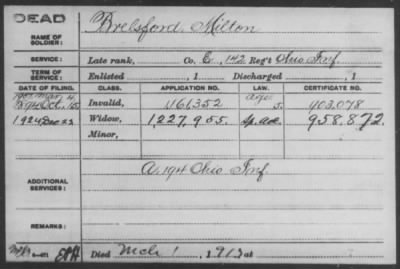 DEAD
NAME OF SOLDIER: Brelsford, Milton
SERVICE: Late rank, Co. 142 Reg't Ohio Inf.
TERM OF SERVICE: Enlisted , 1 Discharged , 1
DATE OF FILING. CLASS. APPLICATION NO. LAW. CERTIFICATE NO.
Oct. Invalid, 1161352 age 403,078
1924 Dec 23 Widow, 1,227,955. Sp. Act. 958.872.
Minor,
ADDITIONAL SERVICES: A. 194 Ohio Inf.
REMARKS:
Died Mch 1, 1913 at